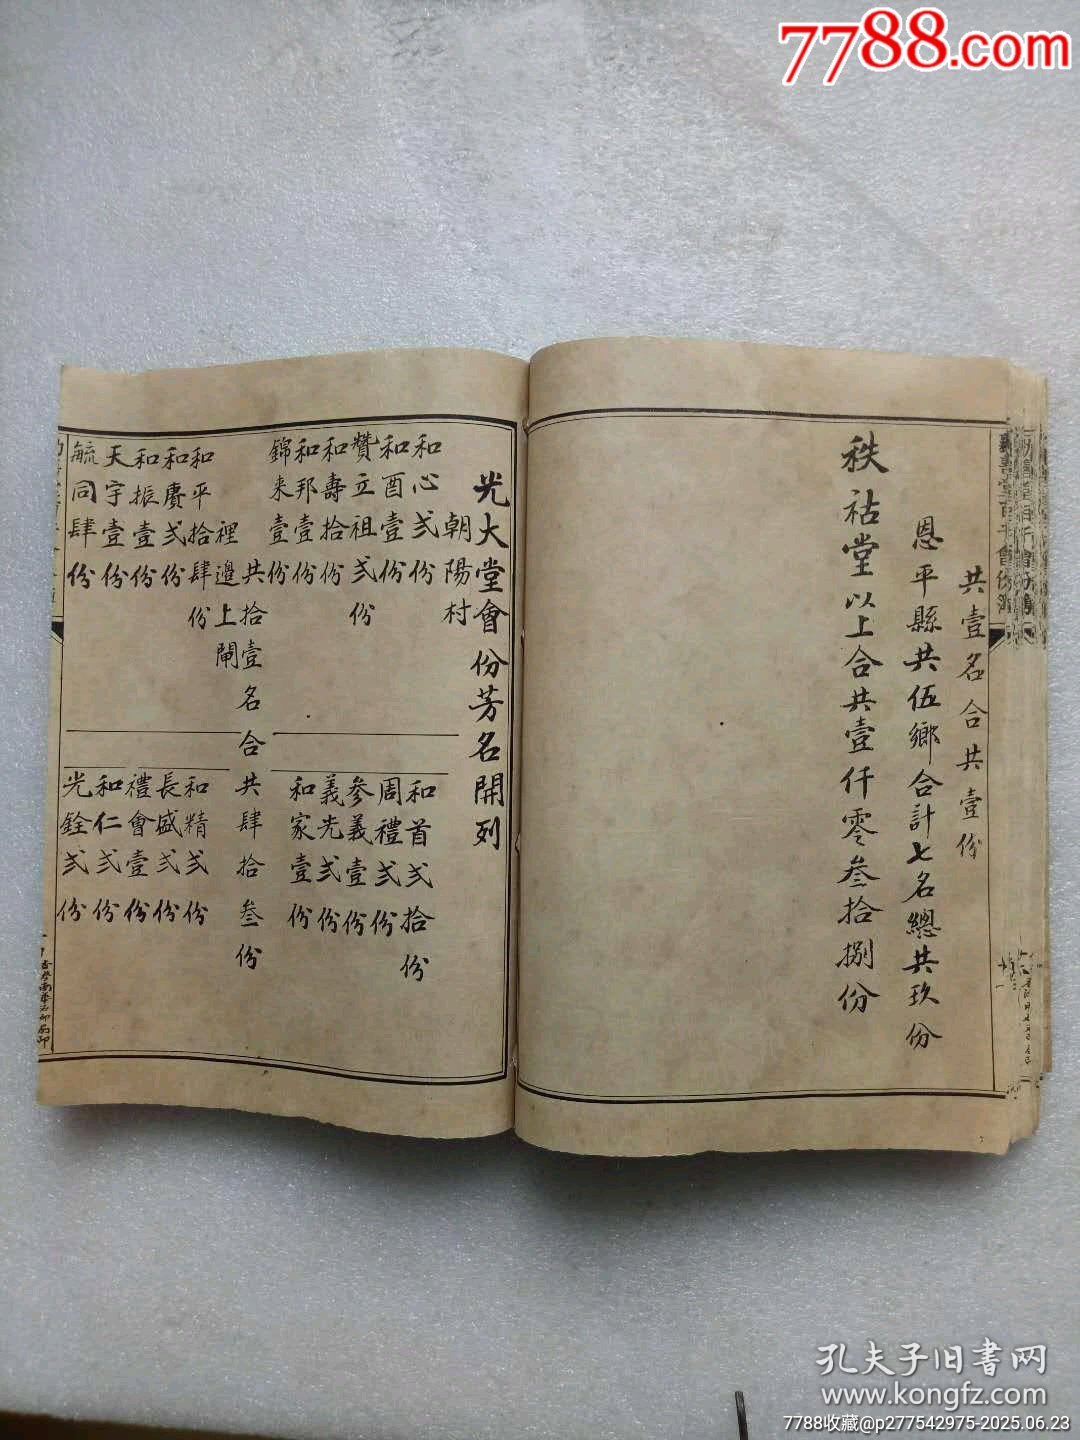 7788.com
共壹名合共壹份
恩平縣共伍鄉合計七名總共玖份
秩祜堂以上合共壹仟零叁拾捌份
光大堂會份芳名開列
朝陽村
和心弍份
和酉壹份
贊立祖弍份
和壽拾份
和邦壹份
錦来壹份
和首弍拾份
周禮弍份
參義壹份
義先弍份
和家壹份
共拾壹名合共肆拾叁份
裡邊上閘
和平拾肆份
和賡弍份
和振壹份
天宇壹份
毓同肆份
和精弍份
長盛弍份
禮會壹份
和仁弍份
光銓弍份
孔夫子旧書网
www.kongfz.com
7788收藏@p277542975-2025.06.23